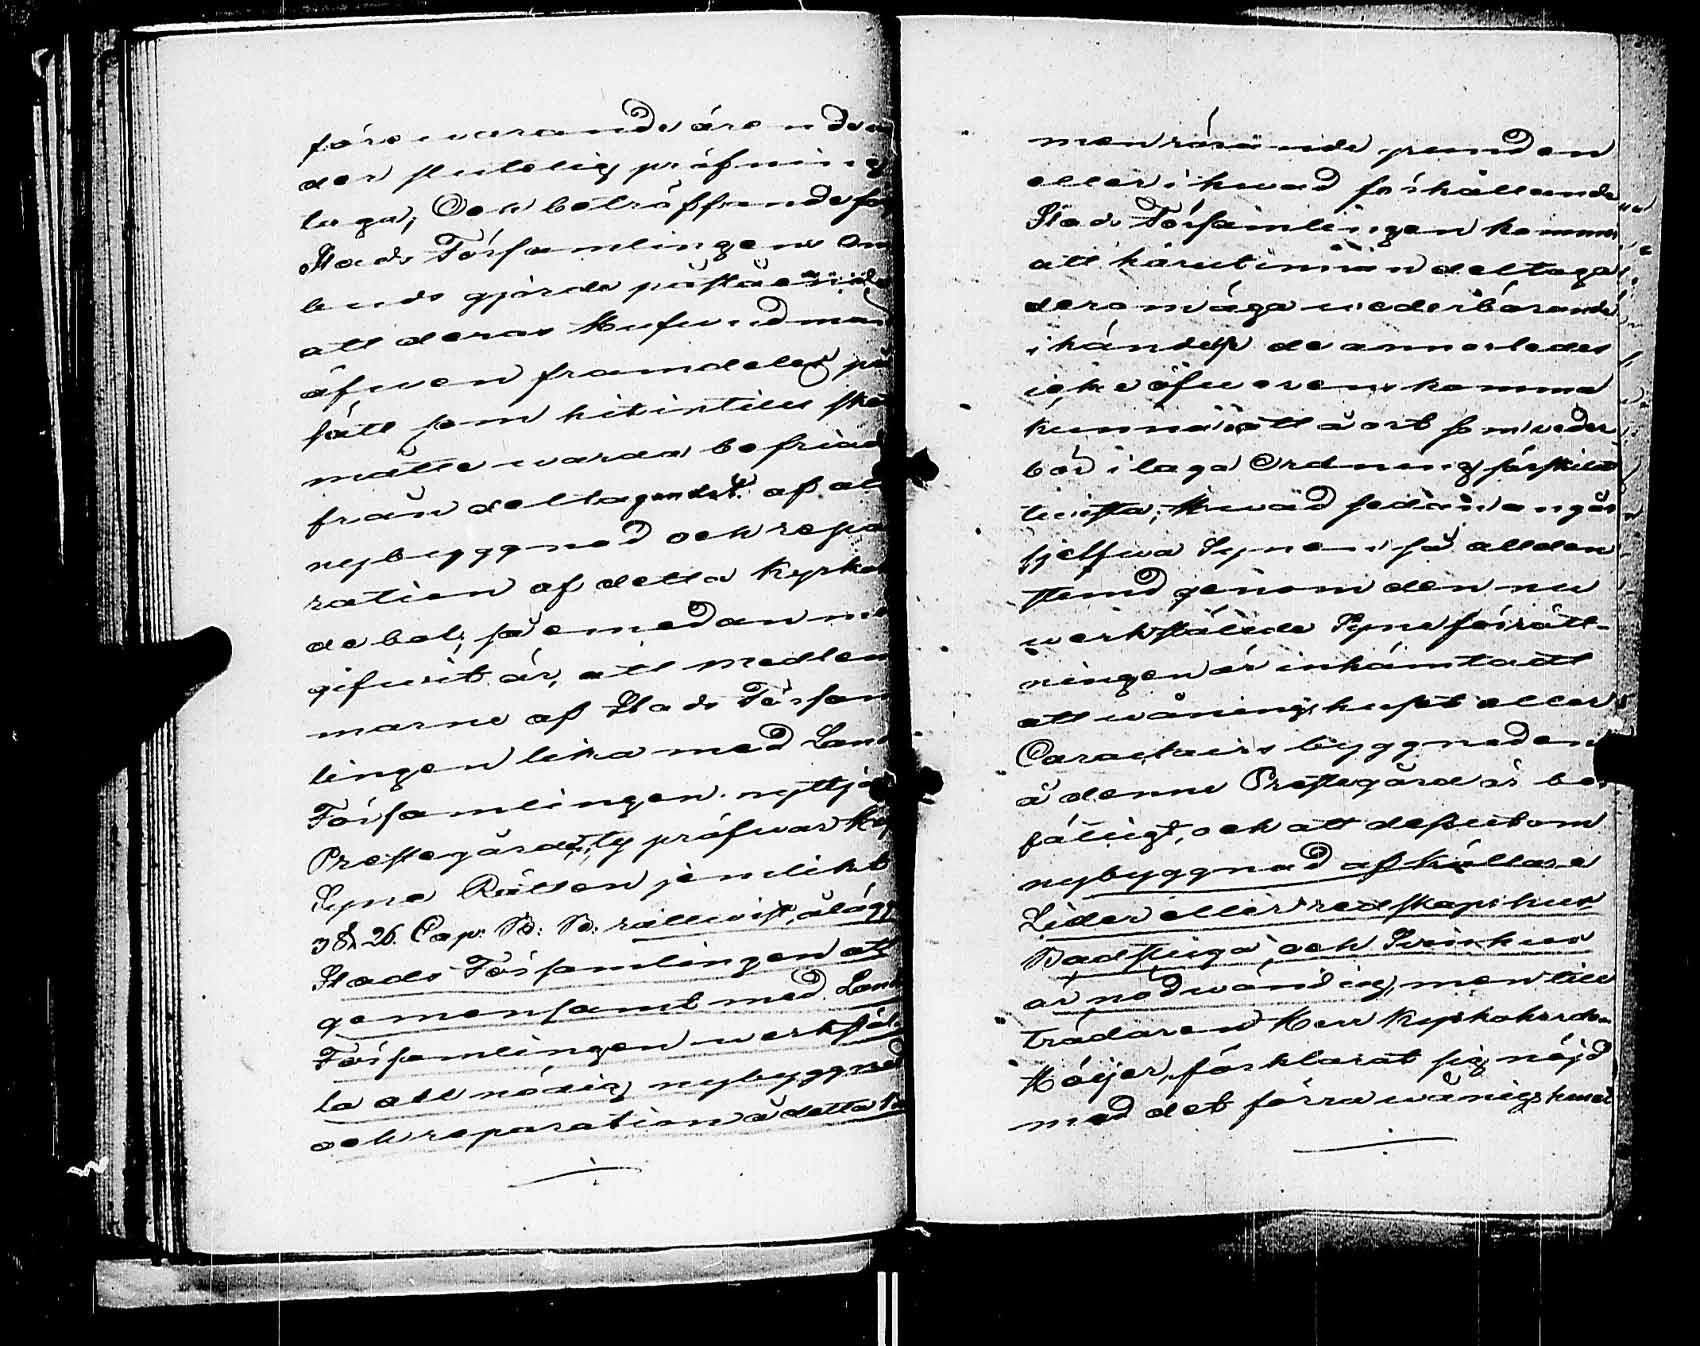 förewarande ären
der slutelig pröfning
taga; Och beträffande
Stads Församlingens Om
buds gjorde påstående
att deras Hufwudmän
äfwen framdeles på
sätt som hitintils
måtte warda befriad
från deltagandet af al
nybyggnad och repa
ration af detta Kyrko
debol; så emedan
gifwit är, att medlem
marne af Stads Försam
lingen lika med Land
Församlingen nyttja
Prestegården, ty pröfwar
Syne Rätten jemlikt
3 § 26. Cap. B: B: rättwist, ålägg
Stads Församlingen att
gemensamt med Land
Församlingen werkstäl
la all nödig nybyggnad
och reparation å detta
men rörande grunden
eller i hwad förhållande
Stads Församlingen kommer
att härutinnan deltaga
derom äga wederbörande
i händelse de annorledes
icke öfwerens komma
kunna att å ort som weder
bör i laga Ordning särskilt
twista; Hwad sedan angår
sjelfwa Synen så alldenn
stund genom den nu
werkstälde Syneförrätt-
ningen är inhämtadt
att wåningshuset eller
Caractairs byggnaden
å denne Prestegård är bo
fälligt, och att desutom
nybyggnad af Källare
Lider eller redskapshus
Badstuga, och Swinhus
är nödwändig, men till
trädaren Herr Kyrkoherden
Höijer, förklarat sig nöjd
med det förra wånigshuset